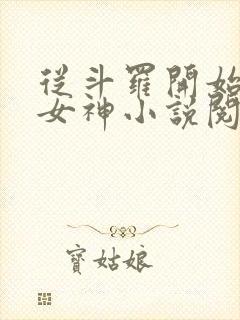 從斗羅開始
女神小說閱
寶姑娘